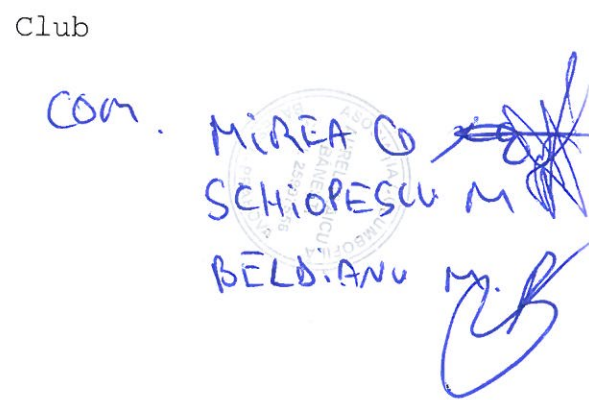 Club
Com. MIREA
SCHIOPESCU M
BELDIANU M.